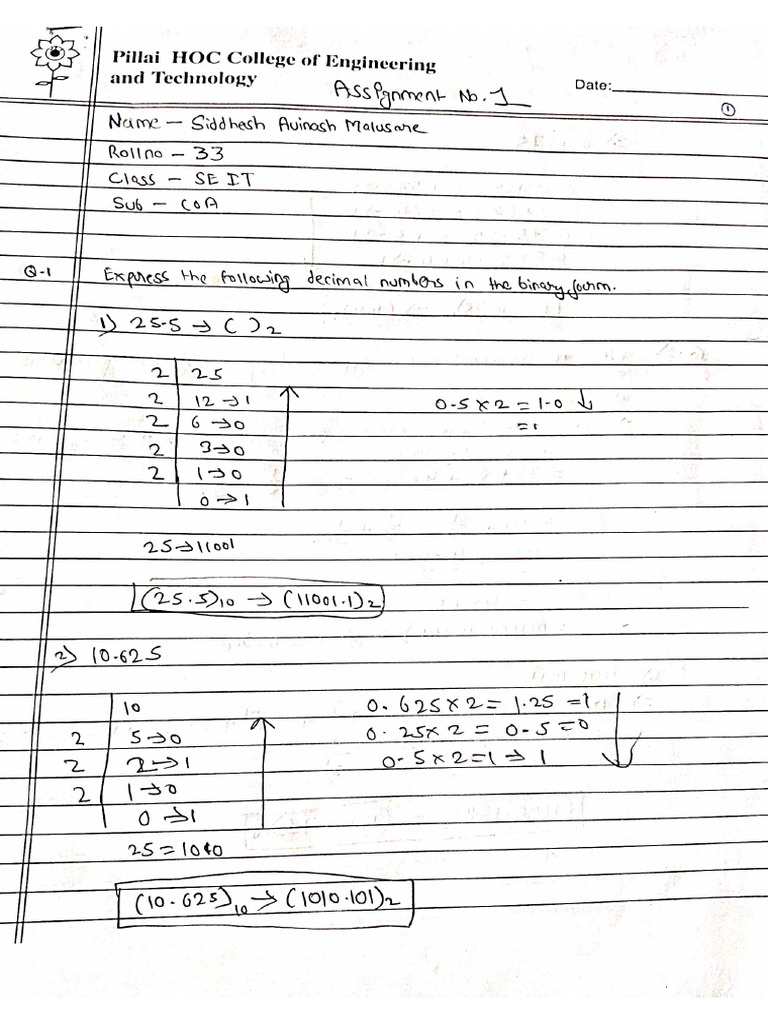 Pillai HOC College of Engineering
and Technology
Assignment No. 1
Date:
1
Name - Siddhesh Avinash Malusare
Roll no - 33
Class - SE IT
Sub - COA
Q-1 Express the following decimal numbers in the binary form.
1) 25.5 → ( )2
2 25
2 12 → 1
2 6 → 0
2 3 → 0
2 1 → 0
0 → 1
0.5 x 2 = 1.0 ↓
= 1
25 → 11001
(25.5)10 → (11001.1)2
2) 10.625
10
2 5 → 0
2 2 → 1
2 1 → 0
0 → 1
0.625 x 2 = 1.25 = 1
0.25 x 2 = 0.5 = 0
0.5 x 2 = 1 → 1
25 = 1010
(10.625)10 → (1010.101)2